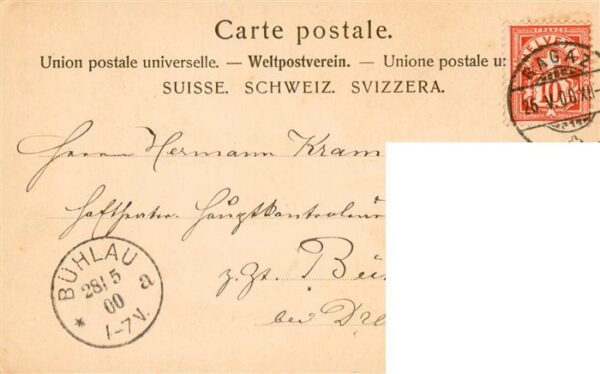 Carte postale.
Union postale universelle. — Weltpostverein. — Unione postale u
SUISSE. SCHWEIZ. SVIZZERA.
FRANCO
HELVE
10
RAGAZ
Herrn Hermann Kram
Hoftheater-Hauptkontroleur
z. Zt. Bü
bei Dre
BÜHLAU
28/5
00
1-7V.
* a